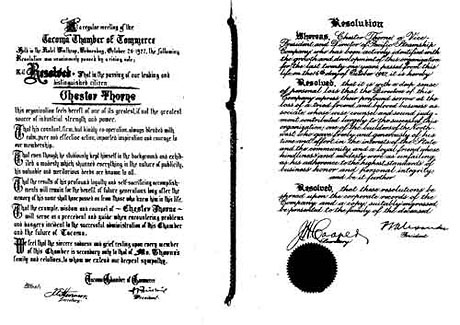 At a regular meeting of the
Tacoma Chamber of Commerce
Held in the Hotel Winthrop, Wednesday, October 26 1927, the following
Resolution was unanimously passed by a rising vote;
Resolved - That in the passing of our leading and
distinguished citizen
Chester Thorne
this organization feels bereft of one of its greatest, if not the greatest
source of industrial strength, and power.
That his constant, firm, but kindly co-operation, always blended with
calm, pure and effective action, imparted inspiration and courage to
our membership.
That even though he studiously kept himself in the background and exhib-
ited a modesty which shunned everything in the nature of publicity,
his valuable and meritorious deeds are known to all.
That the results of his profound loyalty and self-sacrificing accomplish-
ments will remain for the benefit of future generations long after the
memory of his name shall have passed on from those who knew him in this life.
That the example, wisdom and counsel of - Chester Thorne -
will serve as a precedent and guide when encountering problems and
dangers incident to the successful administration of this Chamber
and the future of Tacoma.
We feel that the sincere sadness and grief resting upon every member
of this Chamber is secondary only to that of Mrs. Thorne's
family and relations, to whom we extend our deepest sympathy.
Tacoma Chamber of Commerce
Attest:
Secretary
President
Resolution
Whereas, Chester Thorne a Vice-
President and Director of Pacific Steamship
Company who has been actively identified with
the growth and development of this organization
for the past twenty one years, departed from this
life on the 16 day of October 1927, it is hereby
Resolved, that it is with a deep sense
of personal loss that the Directors of this
Company express their profound sorrow at the
loss of a trusted friend and beloved business as-
sociate whose wise counsel and sound judg-
ment contributed largely to the success of this
organization; one of the builders of the North-
west who gave freely and generously of his
time and effort in the interests of the State
and the community and a loyal friend whose
kindliness and industry work as unfailing
as his adherence to the highest standards of
business honor and personal integrity;
and be it further
Resolved, that these resolutions be
spread upon the corporate records of the
Company and a copy, suitably engrossed,
be presented to the family of the deceased.
Secretary
President